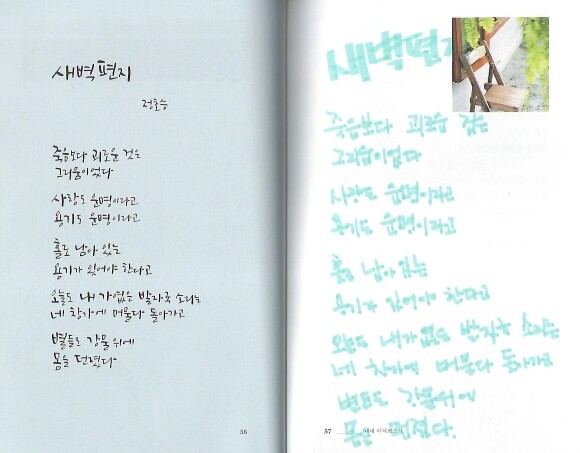 새벽편지
정호승
죽음보다 괴로운 것은
그리움이었다
사랑도 운명이라고
용기도 운명이라고
홀로 남아 있는
용기가 있어야 한다고
오늘도 내 가엾은 발자국 소리는
네 창가에 머물다 돌아가고
별들도 강물 위에
몸을 던졌다
56
새벽편지
죽음보다 괴로운 것은
그리움이었다
사랑도 운명이라고
용기도 운명이라고
홀로 남아 있는
용기가 있어야 한다고
오늘도 내 가엾은 발자국 소리는
네 창가에 머물다 돌아가고
별들도 강물 위에
몸을 던졌다.
57